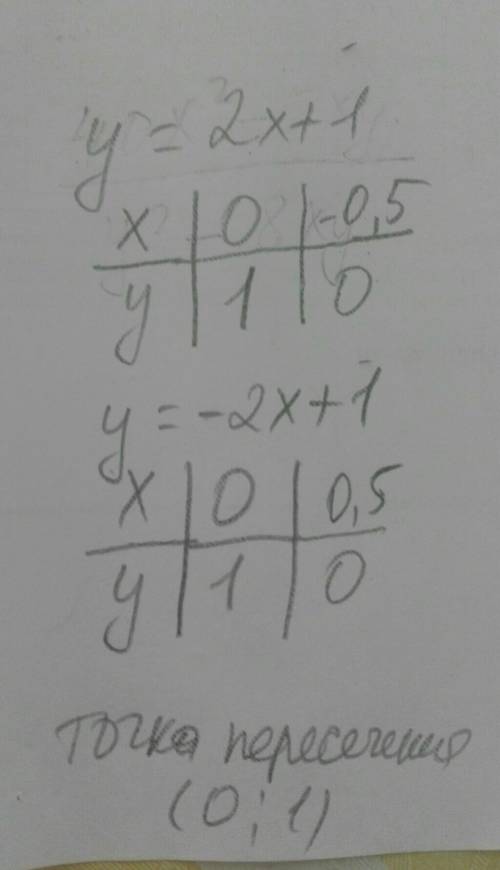 y = 2x+1
x | 0 | -0,5
y | 1 | 0
y = -2x+1
x | 0 | 0,5
y | 1 | 0
точка пересечения
(0; 1)